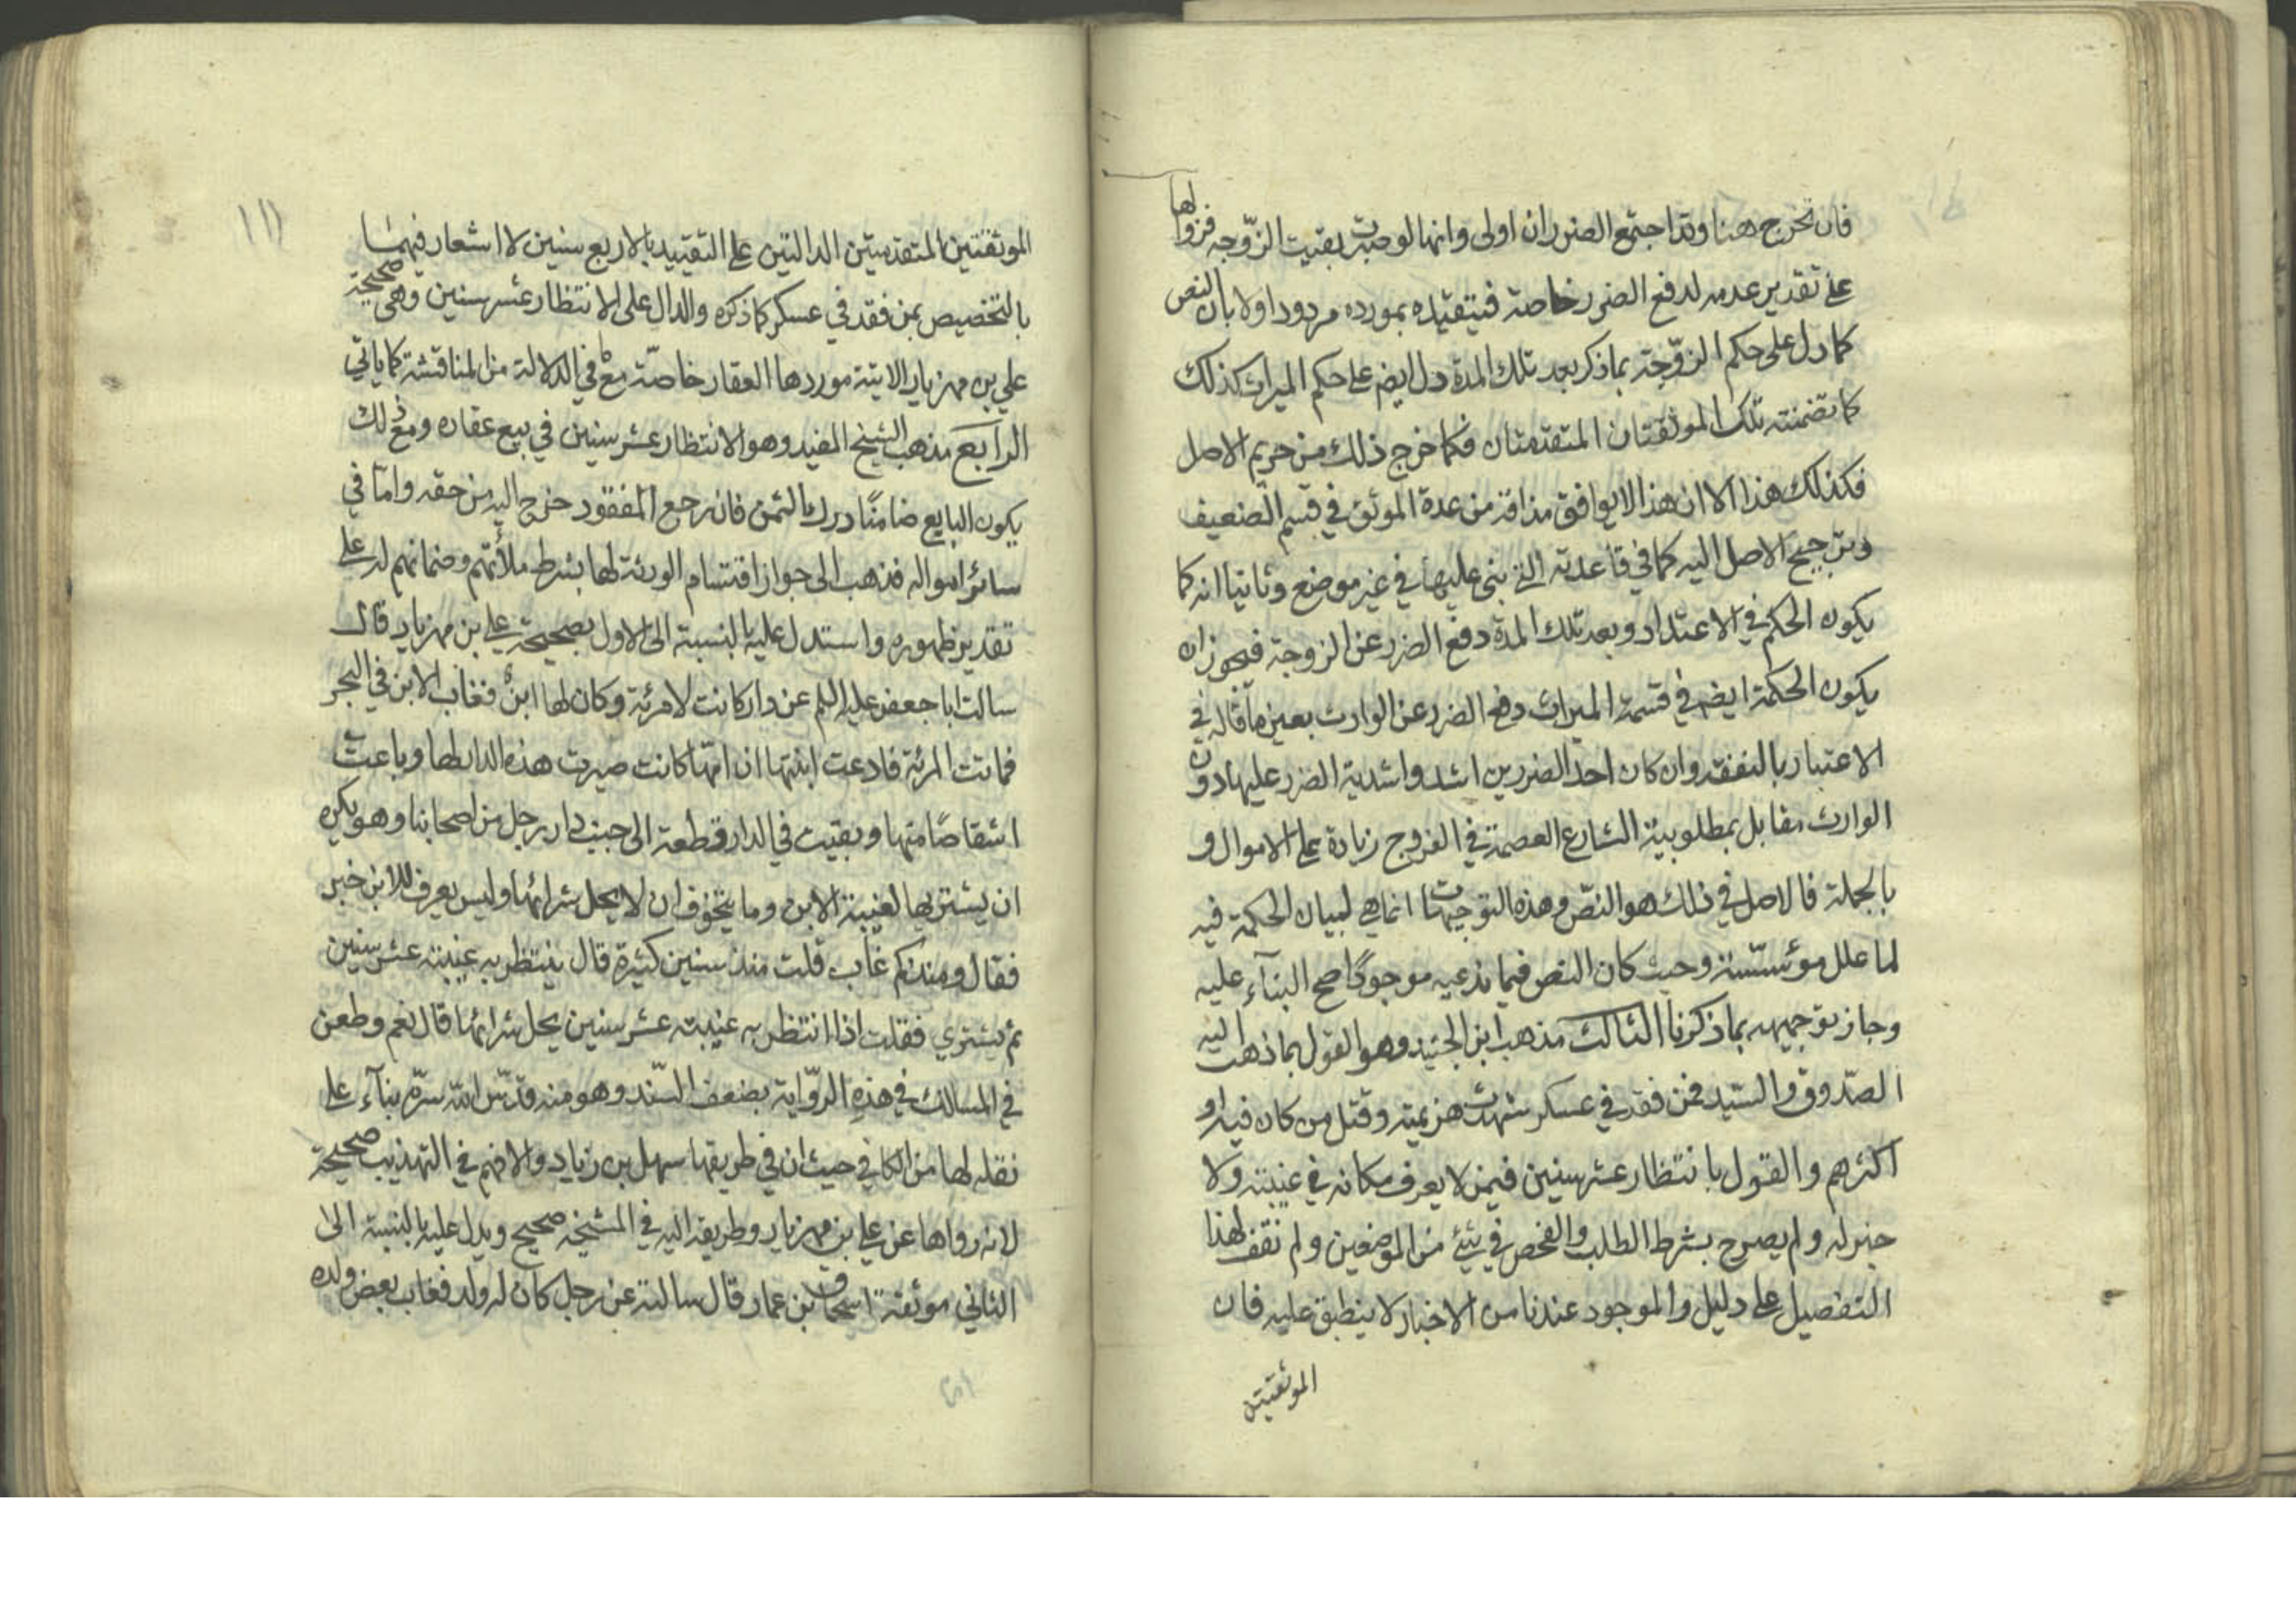 فان تحرج هنا وقد اجتمع الضرران اولى وانها لو صبرت بقيت الزوجه فزوالها
على تقدير عدمه لدفع الضرر خاصة فيتقيده بمورده مردود اولا بان النص
كما دل على حكم الزوّجة بما ذكر بعد تلك المدة دل ايضم على حكم الميراث كذلك
كما تضمنته تلك الموثقتان المتقدمتان فكما خرج ذلك من حريم الاصل
فكذلك هذا الا ان هذا لا يوافق مذاقه من عدة الموثق في قسم الضعيف
وبترجيح الاصل اليه كما في قاعدته التي بنى عليها في غير موضع وثانيا انه كما
يكون الحكم في الاعتداد وبعد تلك المدة دفع الضرر عن الزوجة فيجوز ان
يكون الحكمة ايضم في قسمة الميراث دفع الضرر عن الوارث بعين ما قاله في
الاعتبار بالنفقه وان كان احد الضررين اشد واشدية الضرر عليها دون
الوارث مقابل بمطلوبية الشارع العصمة في الفروج زيادة على الاموال و
بالجملة فالاصل في ذلك هو النصّ وهذه التوجيهات انما هي لبيان الحكمة فيه
لما علل مؤسسة وحيث كان النص فيما ندعيه موجودًا صح البنآء عليه
وجاز توجيهه بما ذكرنا الثالث مذهب ابن الجنيد وهو القول بما ذهب اليه
الصّدوق والسّيد فمن فقد في عسكر شهدت هزيمته وقتل من كان فيه او
اكثرهم والقول بانتظار عشر سنين فيمن لا يعرف مكانه في غيبته ولا
خبر له ولم يصرح بشرط الطلب والفحص في شئ من الموضعين ولم نقف لهذا
التفصيل على دليل والموجود عندنا من الاخبار لا ينطبق عليه فان
الموثقتين
١١١
الموثقتين المتقدمتين الدالتين على التقييد بالاربع سنين لا اشعار فيهما
بالتخصيص بمن فقد في عسكر كما ذكره والدال على الانتظار عشر سنين وهى صحيحة
علي بن مهزيار الاتية موردها العقار خاصّة مع ما في الدلالة من المناقشة كما ياتي
الرابع مذهب الشيخ المفيد وهو الانتظار عشر سنين في بيع عقاره ومع ذلك
يكون البايع ضامنًا درك الثمن فان رجع المفقود خرج اليه من حقه واما في
سائر امواله فذهب الى جواز اقتسام الورثة لها بشرط ملائتهم وضمانهم له على
تقدير ظهوره واستدل عليه بالنسبة الى الاول بصحيحة علي بن مهزيار قال
سالت ابا جعفر عليه السلم عن دار كانت لامرئة وكان لها ابنٌ فغاب الابن في البحر
فماتت المرئة فادعت ابنتها ان امّها كانت صيرت هذه الدار لها وباعت
اشقاصًا منها وبقيت في الدار قطعة الى جنب دار رجل من اصحابنا وهو يكره
ان يشتريها لغيبة الابن وما يتخوف ان لا يحل شرائها وليس يعرف للابن خبر
فقال ومنذ كم غاب قلت منذ سنين كثيرة قال ينتظر به غيبته عشر سنين
ثم يشتري فقلت اذا انتظر به غيبته عشر سنين يحل شرائها قال نعم وطعن
في المسالك في هذِهِ الروّاية بضعف السّند وهو منه قدّس الله سرّه بنآء على
نقله لها من الكافي حيث ان في طريقها سهل بن زياد والا فهى في التهذيب صحيحة
لانه رواها عن علي بن مهزيار وطريقه اليه في المشيخة صحيح ويدل عليه بالنسبة الى
الثاني موثقة اسحاق بن عمار قال سالته عن رجل كان له ولد فغاب بعض ولده